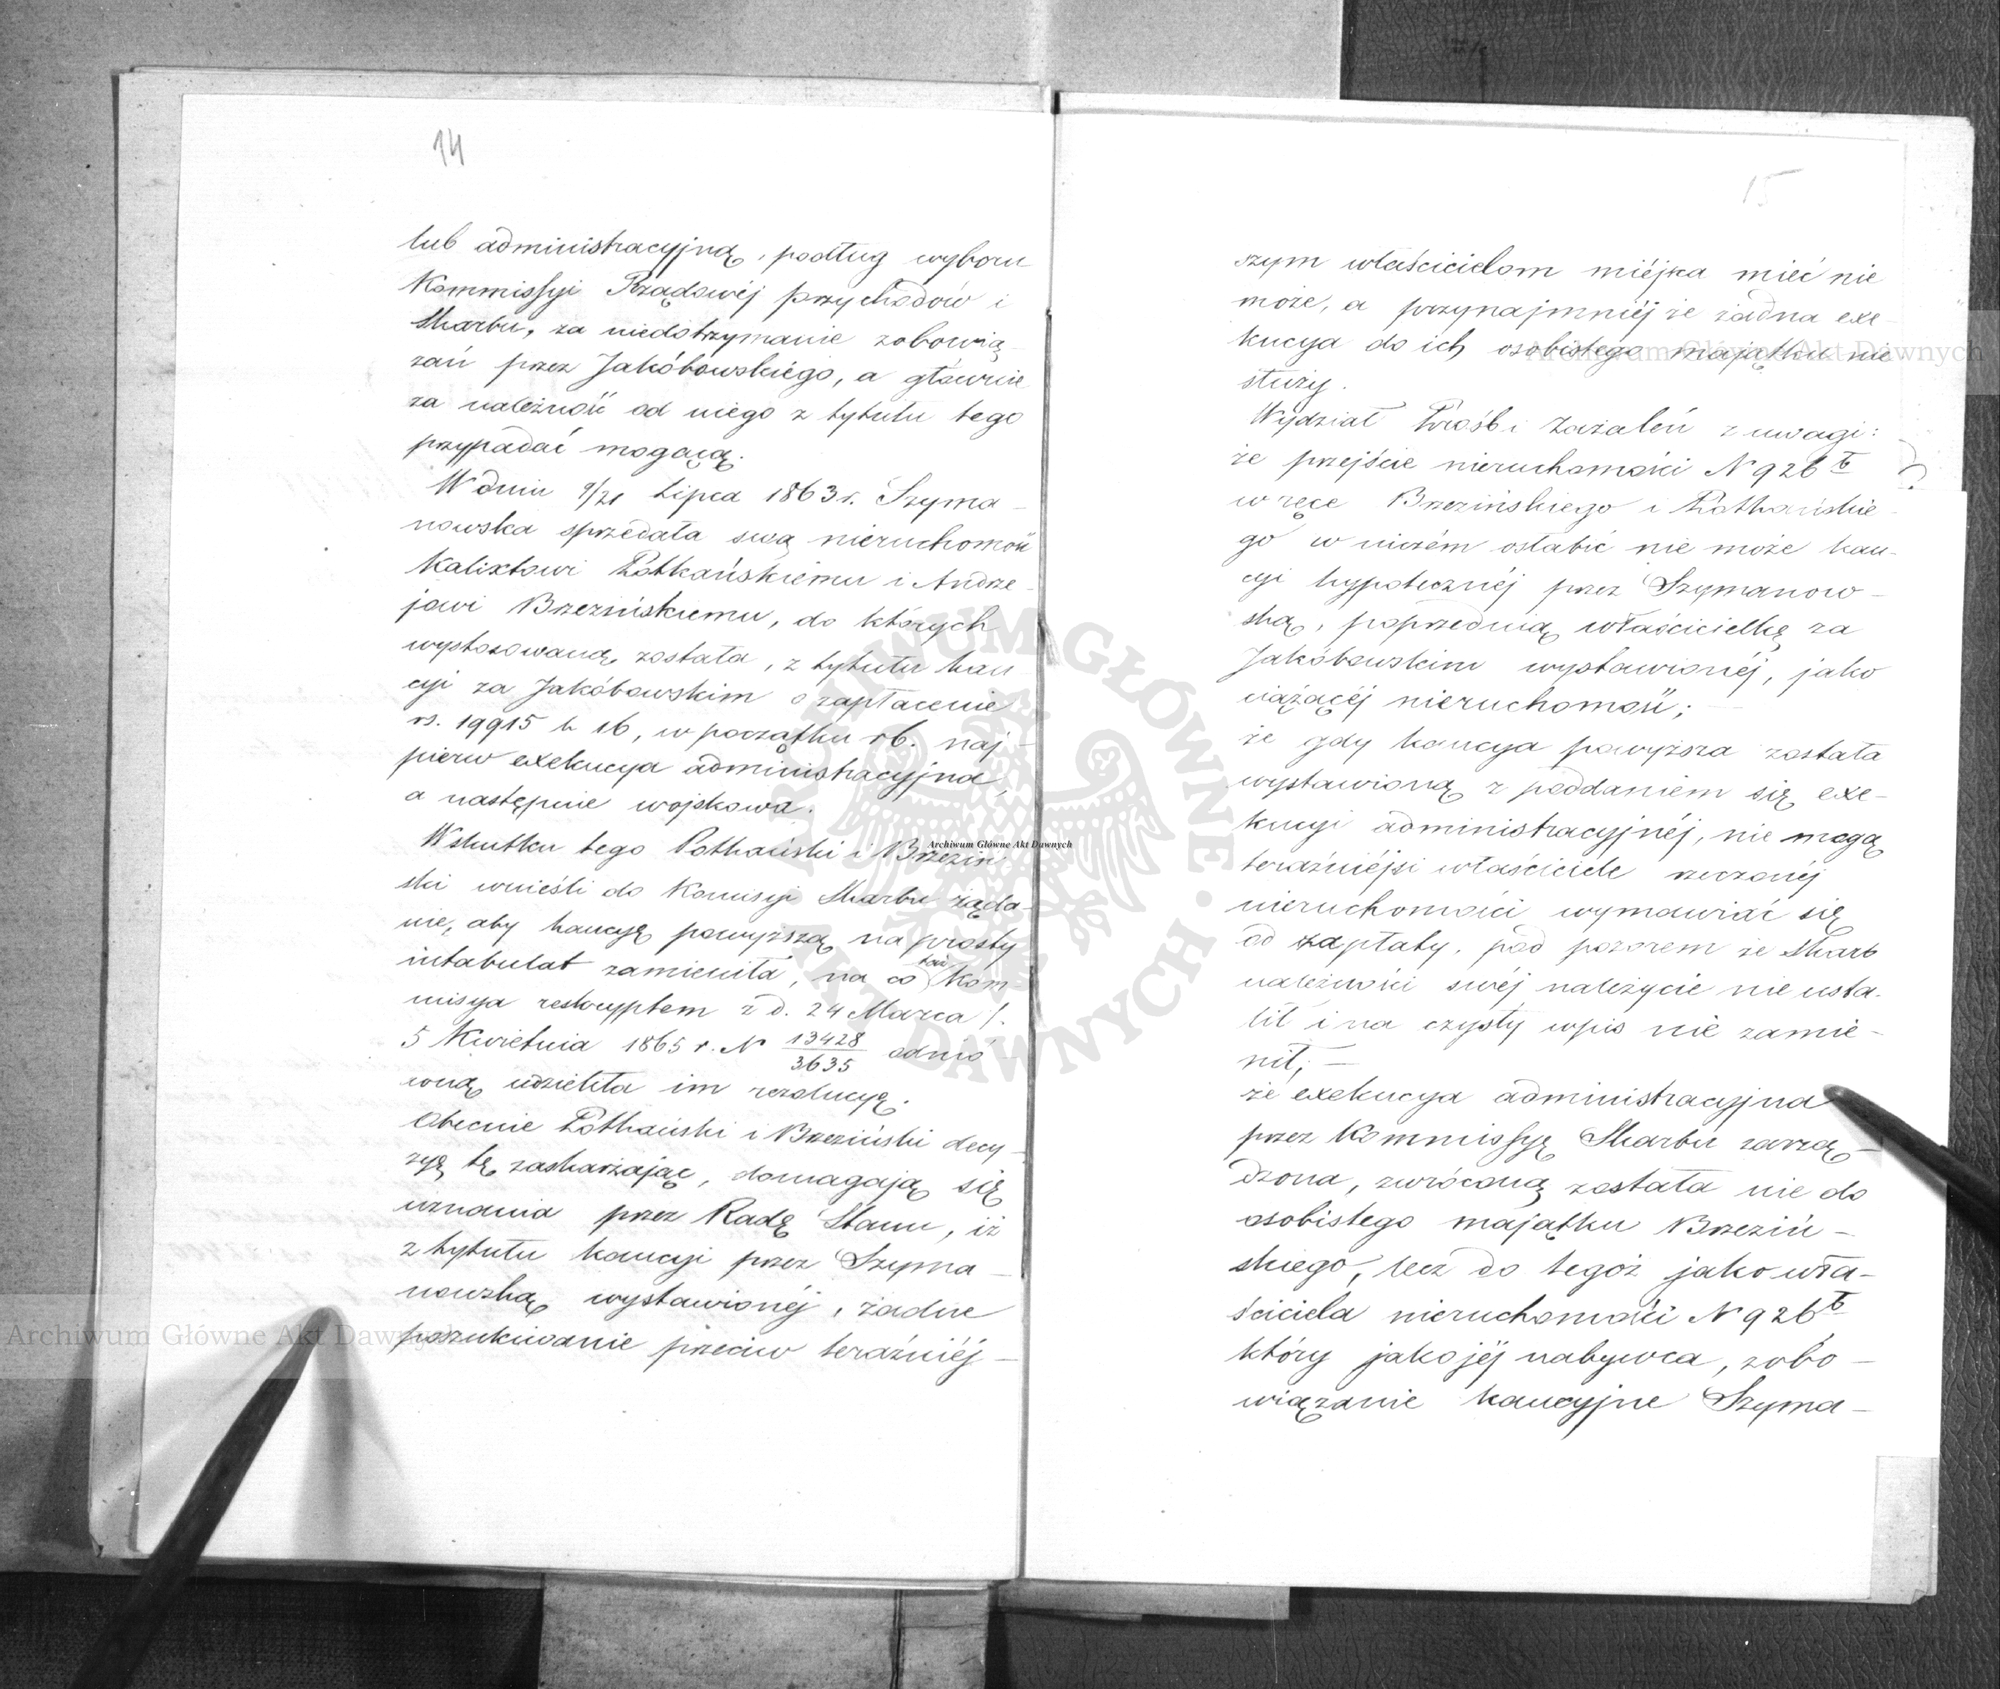 14
lub administracyjną, podług wyboru
Kommissyi Rządowéj przychodów i
Skarbu, za niedotrzymanie zobowią
zań przez Jakóbowskiégo, a głównie
za należność od niego z tytułu tego
przypadać mogącą.
W dniu 9/21 Lipca 1863 r. Szyma-
nowska sprzedała swą nieruchomość
Kalixtowi Potkańskiému i Andrze-
jowi Brzezińskiemu, do których
wystosowaną została, z tytułu kau
cyi za Jakóbowskim o zapłacenie
rs. 19915 k 16, w początku rb. naj-
pierw exekucya administracyjna,
a następnie wojskowa.
Wskutku tego Potkański i Brzeziń
ski wnieśli do Komisyi Skarbu żąda-
nie, aby kaucyę powyższą na prosty
intabulat zamieniła, na co taż Kom-
misya reskryptem z d. 24 Marca /.
5 Kwietnia 1865 r. N 13428/3635 odmo-
wną udzieliła im rezolucyę.
Obecnie Potkański i Brzeziński decy-
zyę tę zaskarżając, domagają się
uznania przez Radę Stanu, iż
z tytułu kaucyi przez Szyma-
nowską wystawionéj, żadne
poszukiwanie przeciw teraźniéj-
15
szym właścicielom miéjsca mieć nie
może, a przynajmniéj że żadna exe-
kucya do ich osobistego majątku nie
służy.
Wydział Prośb i Zażaleń z uwagi:
że przejście nieruchomości N 926 b
w ręce Brzezińskiego i Potkańskie-
go w niczém osłabić nie może kau-
cyi hypotecznéj przez Szymanow-
ską, poprzednią właścicielkę za
Jakóbowskim wystawionéj, jako
ciążącéj nieruchomość; —
że gdy kaucya powyższa została
wystawioną z poddaniem się exe-
kucyi administracyjnéj, nie mogą
teraźniéjsi właściciele rzeczonéj
nieruchomości wymawiać się
od zapłaty, pod pozorem że Skarb
należności swéj należycie nie usta-
lił i na czysty wpis nie zamie-
nił; —
że exekucya administracyjna
przez Kommissyę Skarbu zarzą-
dzona, zwróconą została nie do
osobistego majątku Brzeziń-
skiego, lecz do tegoż jako wła-
ściciela nieruchomości N 926 b
który jako jéj nabywca, zobo-
wiązanie kaucyjne Szyma-
Archiwum Główne Akt Dawnych
Archiwum Główne Akt Dawnych
Archiwum Główne Akt Dawnych
ARCHIWUM GŁÓWNE AKT DAWNYCH